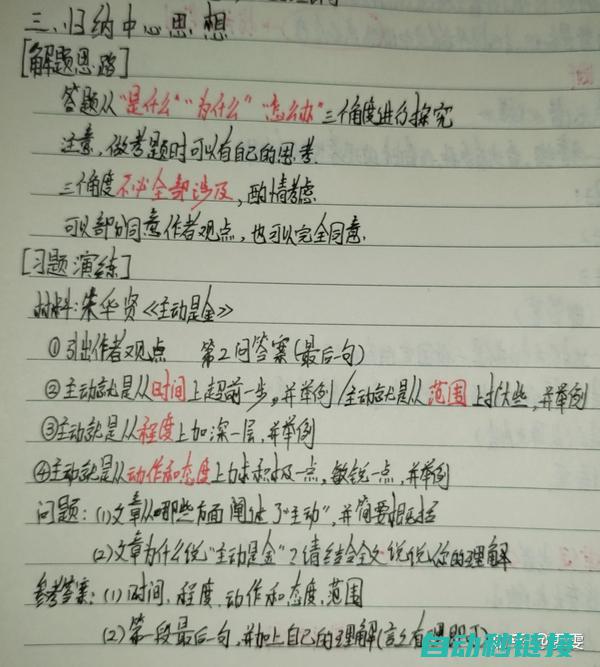 三、归纳中心思想
[解题思路]
答题从"是什么""为什么""怎么办"三个角度进行探究
注意,做考题时可以有自己的思考.
三个角度不必全部涉及,酌情考虑
可以部分同意作者观点,也可以完全同意.
[习题演练]
材料:朱华贤《主动是金》
①引出作者观点 第2问答案(最后句)
②主动就是从时间上超前一步,并举例/主动就是从范围上扩大些,并举例
③主动就是从程度上加深一层,并举例
④主动就是从动作和态度上力求积极一点,敏锐一点,并举例
问题:(1)文章从哪些方面阐述了"主动",并简要概括
(2)文章为什么说"主动是金"?请结合全文说说你的理解
参考答案:(1)时间、程度、动作和态度、范围
(2)第一段最后一句,并加上自己的理解(言之有理即可)
自动秒链接